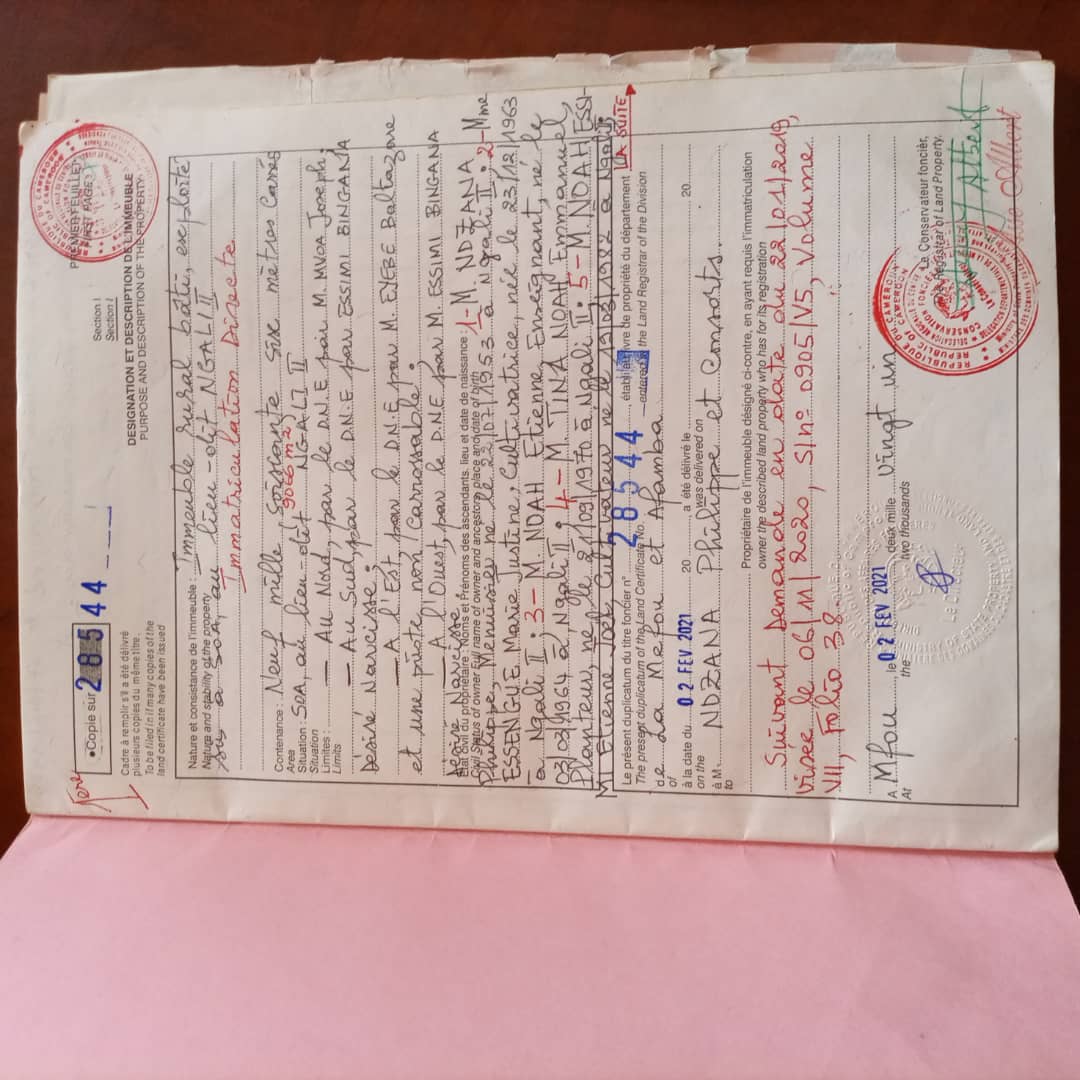 PREMIER FEUILLET
(FIRST PAGE)
Section I
Section I
DESIGNATION ET DESCRIPTION DE L'IMMEUBLE
PURPOSE AND DESCRIPTION OF THE PROPERTY
1ere
•Copie sur
28544
Cadre à remplir s'il a été délivré
plusieurs copies du même titre.
To be filed in if many copies of the
land certificate have been issued
Nature et consistance de l'immeuble : Immeuble rural bâti, exploité
Nature and stability of the property
sis à SOA, au lieu-dit NGALI II
Immatriculation Directe
Contenance : Neuf mille soixante six mètres carrés
Area
9066 m2
Situation : SOA, au lieu-dit NGALI II
Situation
Limites : — Au Nord, par le D.N.E par M. MVOA Joseph.
Limits — Au Sud, par le D.N.E par ESSIMI BINGANA
Désiré Narcisse.
— A l'Est, par le D.N.E par M. EYEBE Baltazare
et une piste non carrossable.
— A l'Ouest, par le D.N.E par M. ESSIMI BINGANA
Désiré Narcisse.
Etat Civil du propriétaire : Noms et Prénoms des ascendants, lieu et date de naissance : 1- M. NDZANA
Civil Status of owner Full name of owner and ancestors place and date of birth
Philippe, Menuisier, né le 22/07/1953 à Ngali II. 2- Mme
ESSENGUE Marie Justine, Cultivatrice, née le 23/12/1963
à Ngali II. 3- M. NOAH Etienne, Enseignant, né le
03/03/1964 à Ngali II. 4- M. TINA NOAH Emmanuel,
Planteur, né le 21/09/1970 à Ngali II. 5- M. NOAH ESSI-
MI Etienne Joel, Cultivateur né le 19/03/1982 à Ngali.
LA SUITE
Le présent duplicatum du titre foncier n° 28544, établi au livre de propriété du département
The present duplicatum of the Land Certificate No. entered the Land Registrar of the Division
de La Mefou et Afamba
of
à la date du 02 FEV 2021 20 a été délivré le 20
on the was delivered on
à M. NDZANA Philippe et Consorts.
to
Propriétaire de l'immeuble désigné ci-contre, en ayant requis l'immatriculation
owner the described land property who has for its registration
Suivant Demande en date du 22/01/2019,
Visée le 06/11/2020, S/n° 0905/V5, Volume
VII, Folio 38.
A Mfou, le 02 FEV 2021 deux mille Vingt un
At the: two thousands
Le Conservateur foncier,
The Registrar of Land Property.
REPUBLIQUE DU CAMEROUN
REPUBLIC OF CAMEROON
Albert